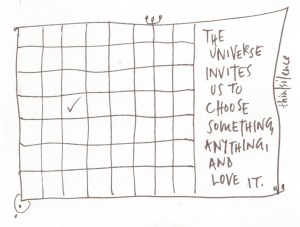 THE
UNIVERSE
INVITES
US TO
CHOOSE
SOMETHING,
ANYTHING,
AND
LOVE IT.
thin|silence